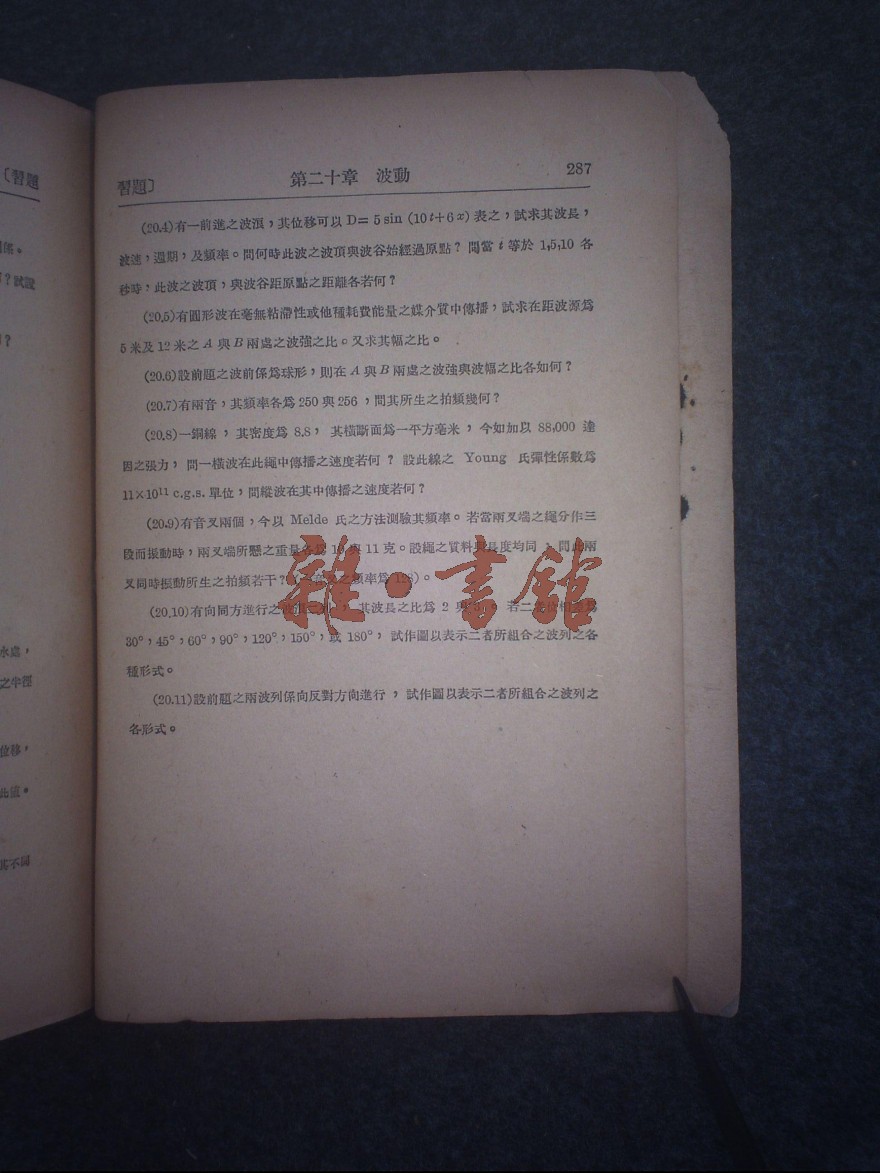 〔習題
係。
？試證
？
水處，
之半徑
位移，
此值。
其不同
習題〕 第二十章 波動 287
(20.4)有一前進之波浪，其位移可以 D= 5 sin (10 t+6 x) 表之，試求其波長，
波速，週期，及頻率。問何時此波之波頂與波谷始經過原點？問當 t 等於 1,5,10 各
秒時，此波之波頂，與波谷距原點之距離各若何？
(20.5)有圓形波在毫無粘滯性或他種耗費能量之媒介質中傳播，試求在距波源爲
5 米及 12 米之 A 與 B 兩處之波強之比。又求其幅之比。
(20.6)設前題之波前係爲球形，則在 A 與 B 兩處之波強與波幅之比各如何？
(20.7)有兩音，其頻率各爲 250 與 256 ，問其所生之拍頻幾何？
(20.8)一銅線， 其密度爲 8.8， 其橫斷面爲一平方毫米， 今如加以 88,000 達
因之張力， 問一橫波在此繩中傳播之速度若何？ 設此線之 Young 氏彈性係數爲
11×10¹¹ c.g.s. 單位，問縱波在其中傳播之速度若何？
(20.9)有音叉兩個，今以 Melde 氏之方法測驗其頻率。若當兩叉端之繩分作三
段而振動時，兩叉端所懸之重量各爲 10 與 11 克。設繩之質料與長度均同，問此兩
叉同時振動所生之拍頻若干？ 之頻率爲 128)。
(20,10)有向同方進行之波列二列， 其波長之比爲 2 與 。 若二 位相 爲
30°，45°，60°，90°，120°，150°，或 180°， 試作圖以表示二者所組合之波列之各
種形式。
(20.11)設前題之兩波列係向反對方向進行， 試作圖以表示二者所組合之波列之
各形式。
雜·書館